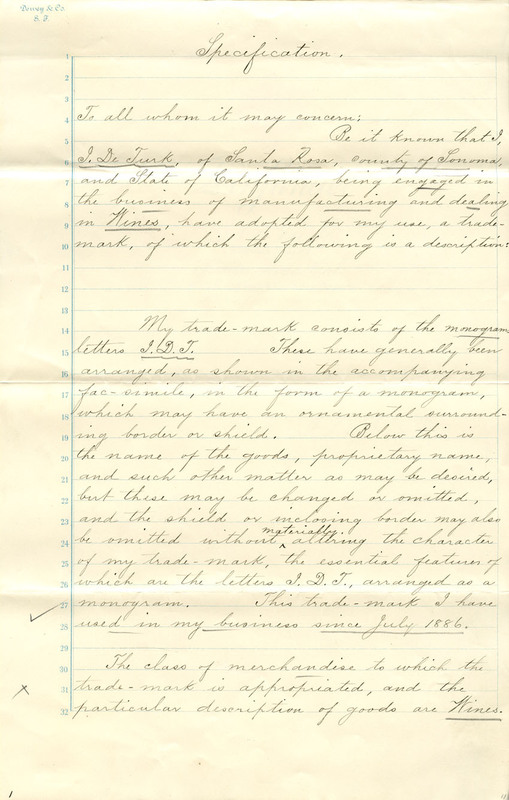 Dewey & Co.
S. F.
Specification.
1
2
3
4
To all whom it may concern:
5
Be it known that I,
6
I. De Turk, of Santa Rosa, county of Sonoma,
7
and State of California, being engaged in
8
the business of manufacturing and dealing
9
in Wines, have adopted for my use, a trade-
10
mark, of which the following is a description:
11
12
13
14
My trade-mark consists of the monogram
15
letters I.D.T. These have generally been
16
arranged, as shown in the accompanying
17
fac-simile, in the form of a monogram,
18
which may have an ornamental surround-
19
ing border or shield. Below this is
20
the name of the goods, proprietary name,
21
and such other matter as may be desired,
22
but these may be changed or omitted,
23
and the shield or inclosing border may also
24
materially
be omitted without ^ altering the character
25
of my trade-mark, the essential features of
26
which are the letters I.D.T., arranged as a
27
monogram. This trade-mark I have
28
used in my business since July 1886.
29
30
The class of merchandise to which the
31
trade-mark is appropriated, and the
32
particular description of goods are Wines.
1